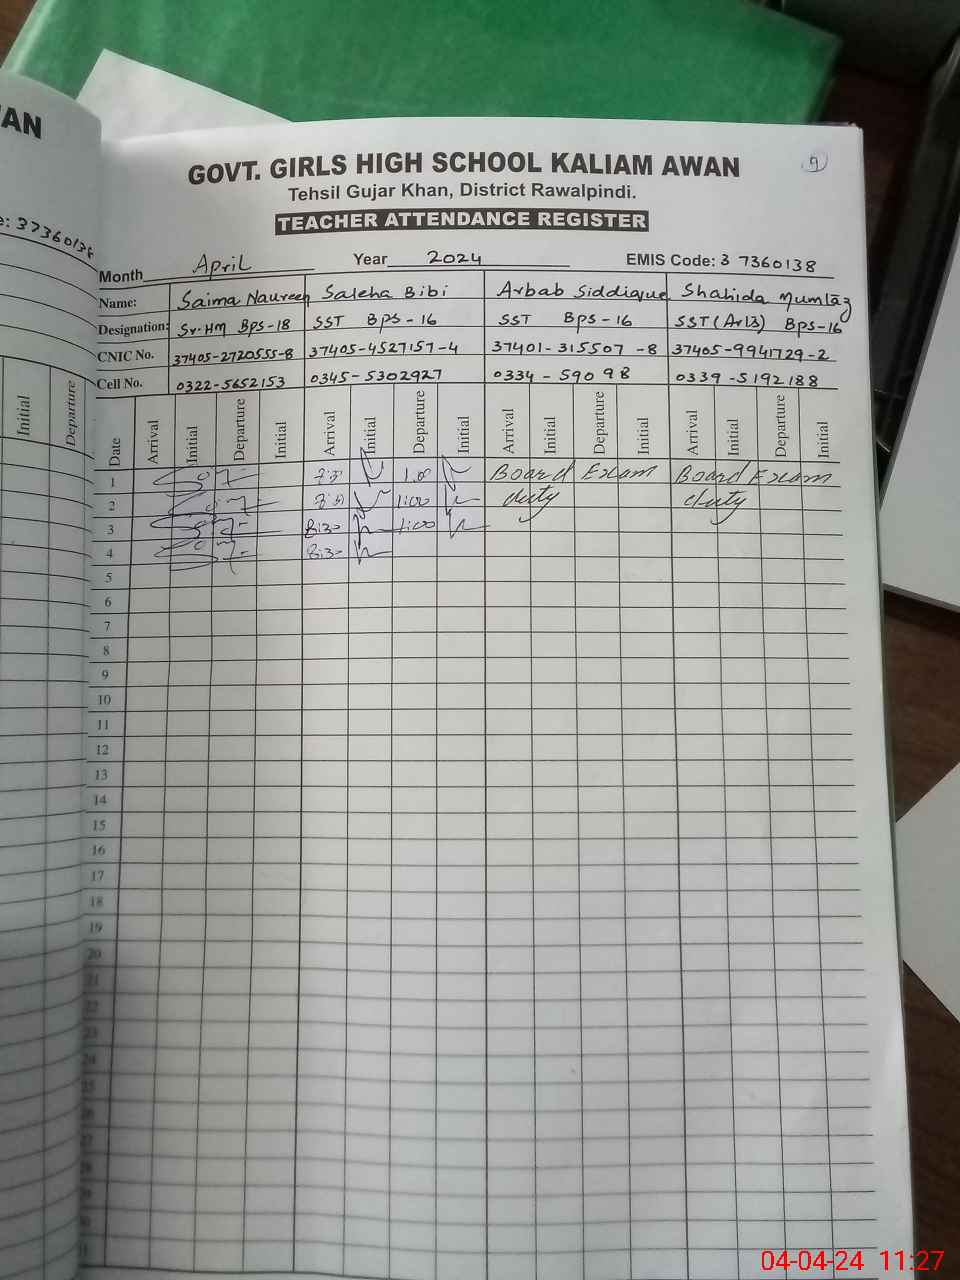 AN
e: 3736013
Initial
Departure
GOVT. GIRLS HIGH SCHOOL KALIAM AWAN
9
Tehsil Gujar Khan, District Rawalpindi.
TEACHER ATTENDANCE REGISTER
Month April Year 2024 EMIS Code: 37360138
Name: Saima Naureen Saleha Bibi Arbab Siddique Shahida Mumtaz
Designation: Sr.HM BPS-18 SST BPS-16 SST BPS-16 SST (Arb) BPS-16
CNIC No. 37405-2720555-8 37405-4527157-4 37401-315507-8 37405-9941729-2
Cell No. 0322-5652153 0345-5302927 0334-59098 0339-5192188
Date Arrival Initial Departure Initial Arrival Initial Departure Initial Arrival Initial Departure Initial Arrival Initial Departure Initial
1 Board Exam Board Exam
2 1:00 duty duty
3 8:30 1:00
4 8:30
5
6
7
8
9
10
11
12
13
14
15
16
17
18
19
20
21
22
23
24
25
26
27
28
04-04-24 11:27